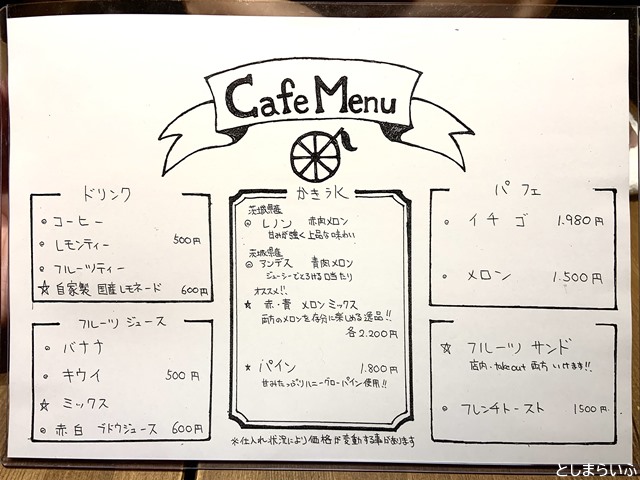 Cafe Menu
ドリンク
◎ コーヒー
◎ レモンティー 500円
◎ フルーツティー
☆ 自家製 国産レモネード 600円
フルーツ ジュース
◎ バナナ
◎ キウイ 500円
☆ ミックス
◎ 赤白 ブドウジュース 600円
かき氷
茨城県産
◎ レノン 赤肉メロン
甘みが強く上品な味わい
茨城県産
◎ アンデス 青肉メロン
ジューシーでとろける口当たり
オススメ!!
★ 赤・青 メロンミックス
両方のメロンを存分に楽しめる逸品!!
各2.200円
★ パイン 1.800円
甘みたっぷりハニーグローパイン使用!!
パフェ
・ イチゴ 1.980円
・ メロン 1.500円
☆ フルーツ サンド
店内・take out 両方いけます!!
◎ フレンチトースト 1500円.
※仕入れ状況により価格が変動する事があります
としまらいふ